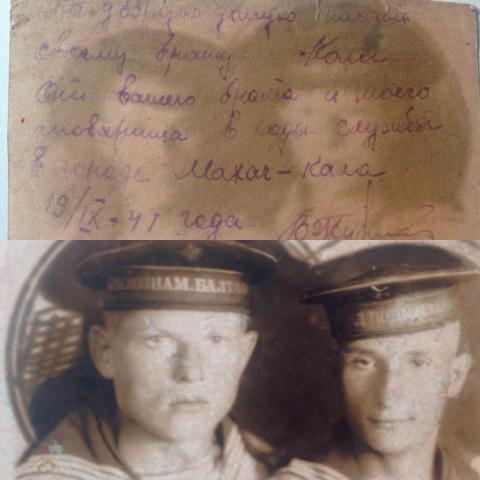 На добрую долгую память
своему брату Коли
От вашего брата и моего
товарища в годы службы
В городе Махач-Кала
19/IX-41 года
ОЗНАМ.БАЛТ